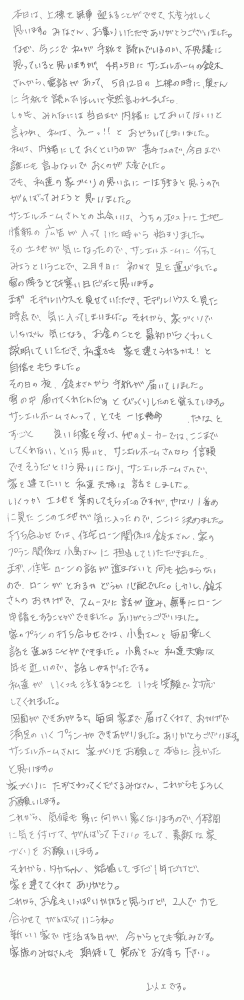 本日は、上棟を無事 迎えることができて、大変うれしく
思います。みなさん、お集りいただきありがとうございました。
なぜ、今ここで私が手紙を読んでいるのか、不思議に
思っていると思いますが、4月25日にサンエルホームの鈴木
さんから、電話があって、5月12日の上棟の時に、奥さん
に手紙を読んでほしいと突然言われました。
しかも、みんなには当日まで内緒にしておいてほしいと
言われ、私は、えー。!! と おどろいてしまいました。
私は、内緒にしておくというのが 苦手なので、今日まで
誰にも言わないでおくのが大変でした。
でも、私達の家づくりの思い出に一生残ると思うので
がんばってみようと思いました。
サンエルホームさんとの出会いは、うちのポストに土地
情報の広告が入っていた時から 始まりました。
その土地が気になったので、サンエルホームに行って
みようということで、2月9日に 初めて足を運びました。
雪の降るとても寒い日だったと思います。
まず モデルハウスを見せていただき、モデルハウスを見た
時点で、気に入ってしまいました。それから、家づくりで
いちばん 気になる、お金のことを最初からくわしく
説明していただき、私達でも 家を建てられるかも!と
自信をもらました。
その日の夜、鈴木さんから手紙が届いていました。
雪の中届けてくれたんだぁとびっくりしたのを覚えています。
サンエルホームさんって、とても一生懸命 だなぁと
すごく 良い印象を受け、他のメーカーでは、ここまで
してくれない、という思いと、サンエルホームさんなら信頼
できそうだという思いになり、サンエルホームさんで、
家を建てたいと私達夫婦は話をしました。
いくつか土地を案内してもらったのですが、やはり1番初め
に見たここの土地が気に入ったので、ここに決めました。
打ち合せでは、住宅ローン関係は鈴木さん、家の
プラン関係は小島さんに担当していただきました。
まず、住宅ローンの話が進まないと何も始まらない
ので、ローンがとおるかどうか心配でした。しかし、鈴木
さんのおかげで、スムーズに話が進み、無事にローン
申請をすることができました。ありがとうございました。
家のプランの打ち合せでは、小島さんと毎回楽しく
話を進めることができました。小島さんと私達夫婦は
年も近いので、話しやすかったです。
私達が いくつも注文することを いつも笑顔で対応
してくれました。
図面ができあがると、毎回家まで届けてくれて、おかげで
満足のいくプランができあがりました。ありがとうございます。
サンエルホームさんに 家づくりをお願して本当に良かった
と思います。
家づくりに たずさわってくださるみなさん、これからもよろしく
お願いします。
これから、気候も暑くなりますので、体調
に気を付けて、がんばって下さい。そして、素敵な家
づくりをお願いします。
それから、タカちゃん、結婚してまだ1年だけど、
家を建ててくれて ありがとう。
これから、お金もいっぱいかかると思うけど、2人で力を
合わせて がんばっていこうね。
新しい家で生活する日が、今からとても楽しみです。
家族のみなさんも期待して完成をお待ち下さい。
以上です。